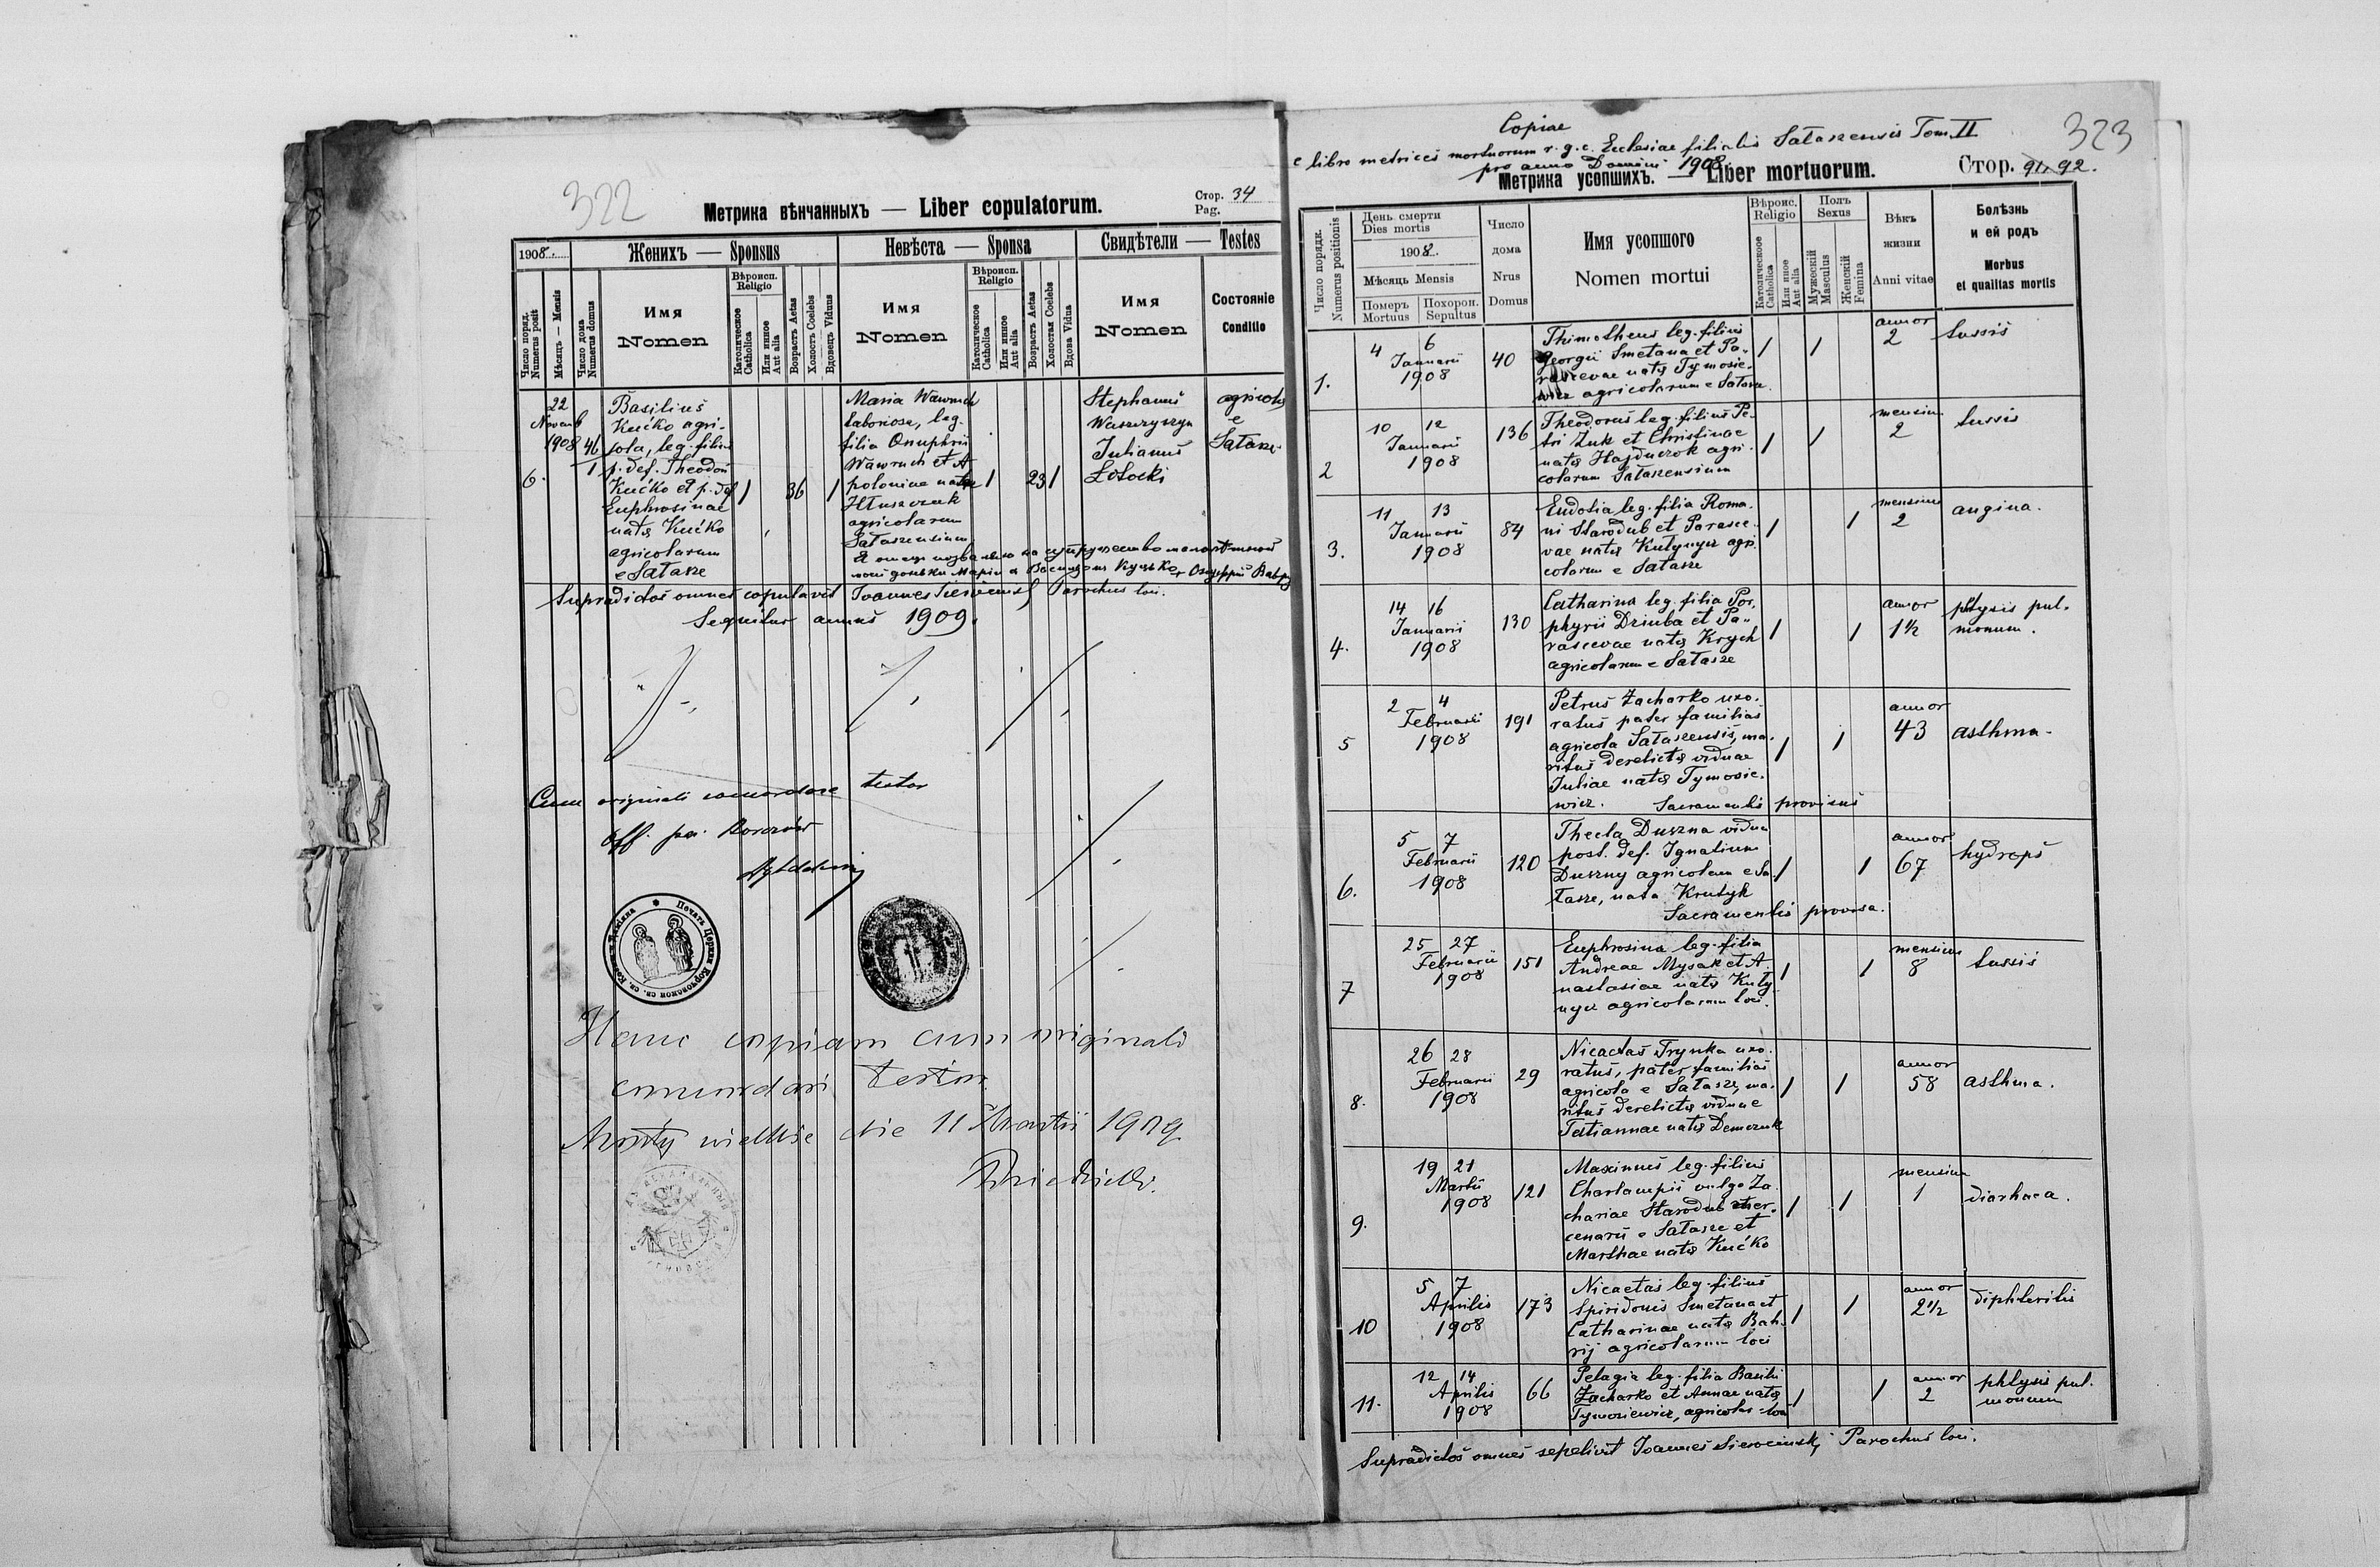 322
Метрика вѣнчанныхъ — Liber copulatorum.
Стор. 34
Pag.
1908.
Женихъ — Sponsus
Невѣста — Sponsa
Свидѣтели — Testes
Число поряд. Numerus posit
Мѣсяць — Mensis
Число дома Numerus domus
Имя
Nomen
Вѣроисп.
Religio
Католическое Catholica
Или инное Aut alia
Возрасть Aetas
Холость Coelebs
Вдовець Vidus
Имя
Nomen
Вѣроисп.
Religio
Католическое Catholica
Или инное Aut alia
Возрасть Aetas
Холостая Coelebs
Вдова Vidua
Имя
Nomen
Состояніе
Conditio
6.
22
Novemb
1908
46
1
Basilius
Kućko agri-
cola, leg. filius
p. def. Theodori
Kućko et p. def
Euphrosinae
nata Kućko
agricolarum
e Sałasze
1
36
1
Maria Wawruch
laboriosa, leg.
filia Onuphrii
Wawruch et A
poloniae natae
Hłuszczuk
agricolarum
Sałaszensium
1
23
1
Stephanus
Waszczyszyn
Julianus
Łotocki
agricolae
e
Sałasze
Supradictos omnes copulavit Joannes Sierocinskj Parochus loci.
Sequitur annus 1909.
Cum originali concordare testor
Off. par.
Печать Церкви св. Козмы и Даміана
Hanc copiam cum originali
concordari testor
Mosty wielkie die 11 Martii 1909
323
Copiae
e libro metrices mortuorum r. g. c. Ecclesiae filialis Sałaszensis Tom. II
pro anno Domini 1908.
Метрика усопшихъ. — Liber mortuorum.
Стор. 91, 92.
Число порядк. Numerus positionis
День смерти
Dies mortis
1908.
Мѣсяць Mensis
Померъ
Mortuus
Похорон.
Sepultus
Число
дома
Nrus
Domus
Имя усопшого
Nomen mortui
Вѣроис.
Religio
Католическоое Catholica
Или инное Aut alia
Полъ
Sexus
Мужескій Masculus
Женскій Femina
Вѣкъ
жизни
Anni vitae
Болѣзнь
и ей родъ
Morbus
et qualitas mortis
1.
4 6
Januarii
1908
40
Thimotheus leg. filius
Georgii Smetana et Pa-
rascevae nata Tymosie-
wicz agricolarum e Sałasze
1
1
annor
2
tussis
2
10 12
Januarii
1908
136
Theodorus leg. filius Pe-
tri Żuk et Christinae
nata Hajduczok agri-
colarum Sałaszensium
1
1
mensium
2
tussis
3.
11 13
Januarii
1908
84
Eudotia leg. filia Roma-
ni Starodub et Parasce-
vae nata Kułynycz agri-
colarum e Sałasze
1
1
mensium
2
angina.
4.
14 16
Januarii
1908
130
Catharina leg. filia Por-
phyrii Dziuba et Pa-
rascevae nata Krych
agricolarum e Sałasze
1
1
annor
1½
phtysis pul-
monum.
5
2 4
Februarii
1908
191
Petrus Zacharko uxo-
ratus pater familias
agricola Sałaszensis, ma-
ritus derelicta viduae
Juliae nata Tymosie-
wicz. Sacramentis provisus
1
1
annor
43
asthma.
6.
5 7
Februarii
1908
120
Thecla Duszna vidua
post. def. Ignatium
Duszny agricolam e Sa-
łasze, nata Krutyk
Sacramentis provisa.
1
1
annor
67
hydrops
7
25 27
Februarii
1908
151
Euphrosina leg. filia
Andreae Mysak et A-
nastasiae nata Kuły-
nycz agricolarum loci.
1
1
mensium
8
tussis
8.
26 28
Februarii
1908
29
Nicaetas Trynka uxo-
ratus, pater familias
agricola e Sałasze, ma-
ritus derelicta viduae
Tatiannae nata Demczuk
1
1
annor
58
asthma.
9.
19 21
Martii
1908
121
Maximus leg. filius
Charlampii vulgo Za-
chariae Starodub mer-
cenarii e Sałasze et
Marthae nata Kućko
1
1
mensium
1
diarhaea.
10
5 7
Aprilis
1908
173
Nicaetas leg. filius
Spiridonis Smetana et
Catharinae nata Bah-
rij agricolarum loci
1
1
annor
2½
diphteritis
11.
12 14
Aprilis
1908
66
Pelagia leg. filia Basilii
Zacharko et Annae nata
Tymosiewicz, agricolar loci
1
1
annor
2
phtysis pul-
monum
Supradictos omnes sepelivit Joannes Sierocinskj Parochus loci.